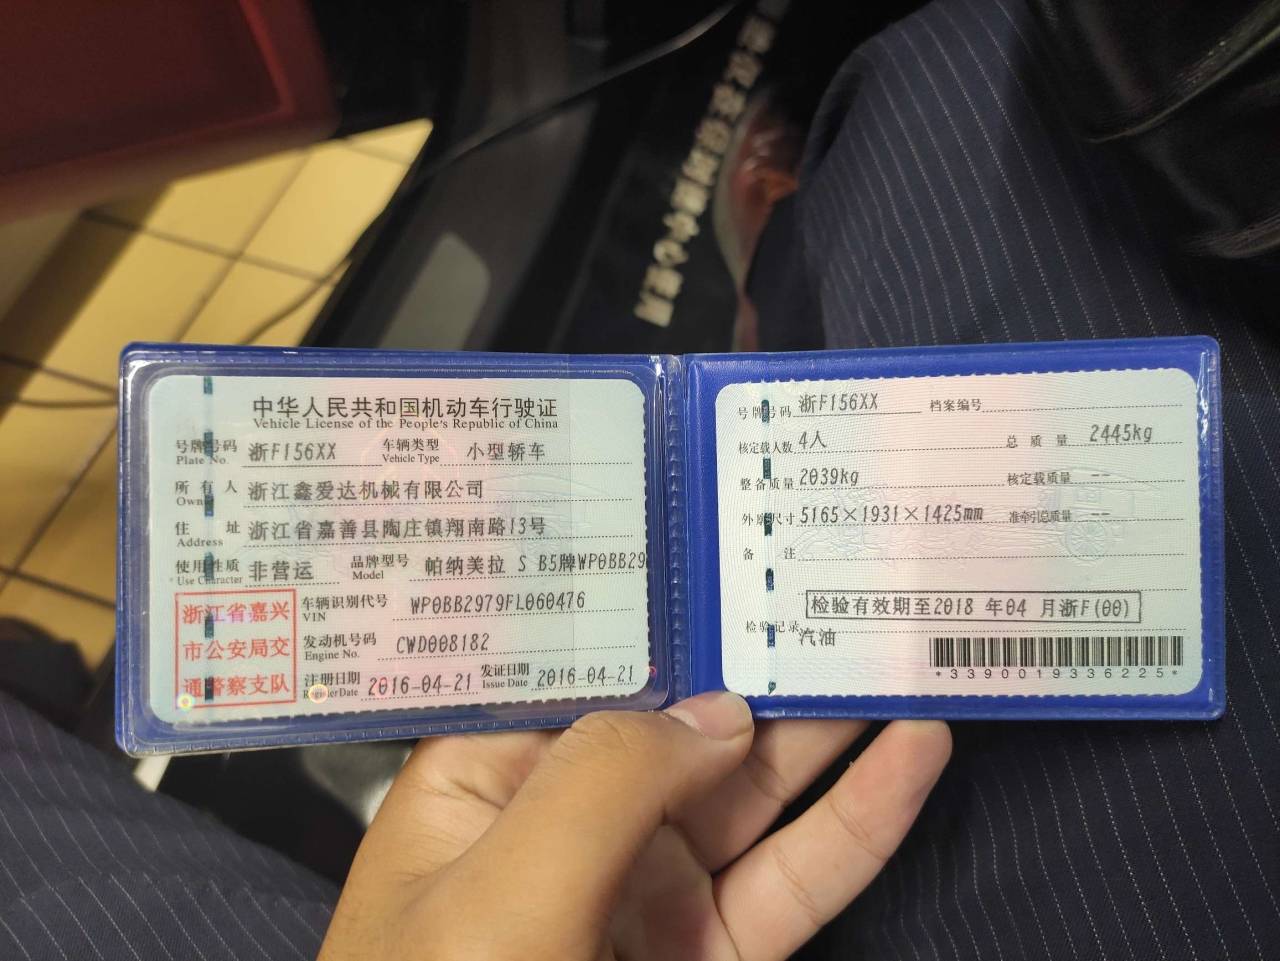 中华人民共和国机动车行驶证
Vehicle License of the People's Republic of China
号牌号码 浙F156XX 车辆类型 小型轿车
Plate No. Vehicle Type
所有人 浙江鑫爱达机械有限公司
Owner
住址 浙江省嘉善县陶庄镇翔南路13号
Address
使用性质 非营运 品牌型号 帕纳美拉 S B5牌WP0BB29
Use Character Model
浙江省嘉兴
市公安局交
通警察支队
车辆识别代号 WP0BB2979FL060476
VIN
发动机号码 CWD008182
Engine No.
注册日期 2016-04-21 发证日期 2016-04-21
Register Date Issue Date
号牌号码 浙F156XX 档案编号
核定载人数 4人 总质量 2445kg
整备质量 2039kg 核定载质量 --
外廓尺寸 5165×1931×1425mm 准牵引总质量 --
备注
检验有效期至2018 年04 月浙F(00)
检验记录 汽油
*3390019336225*